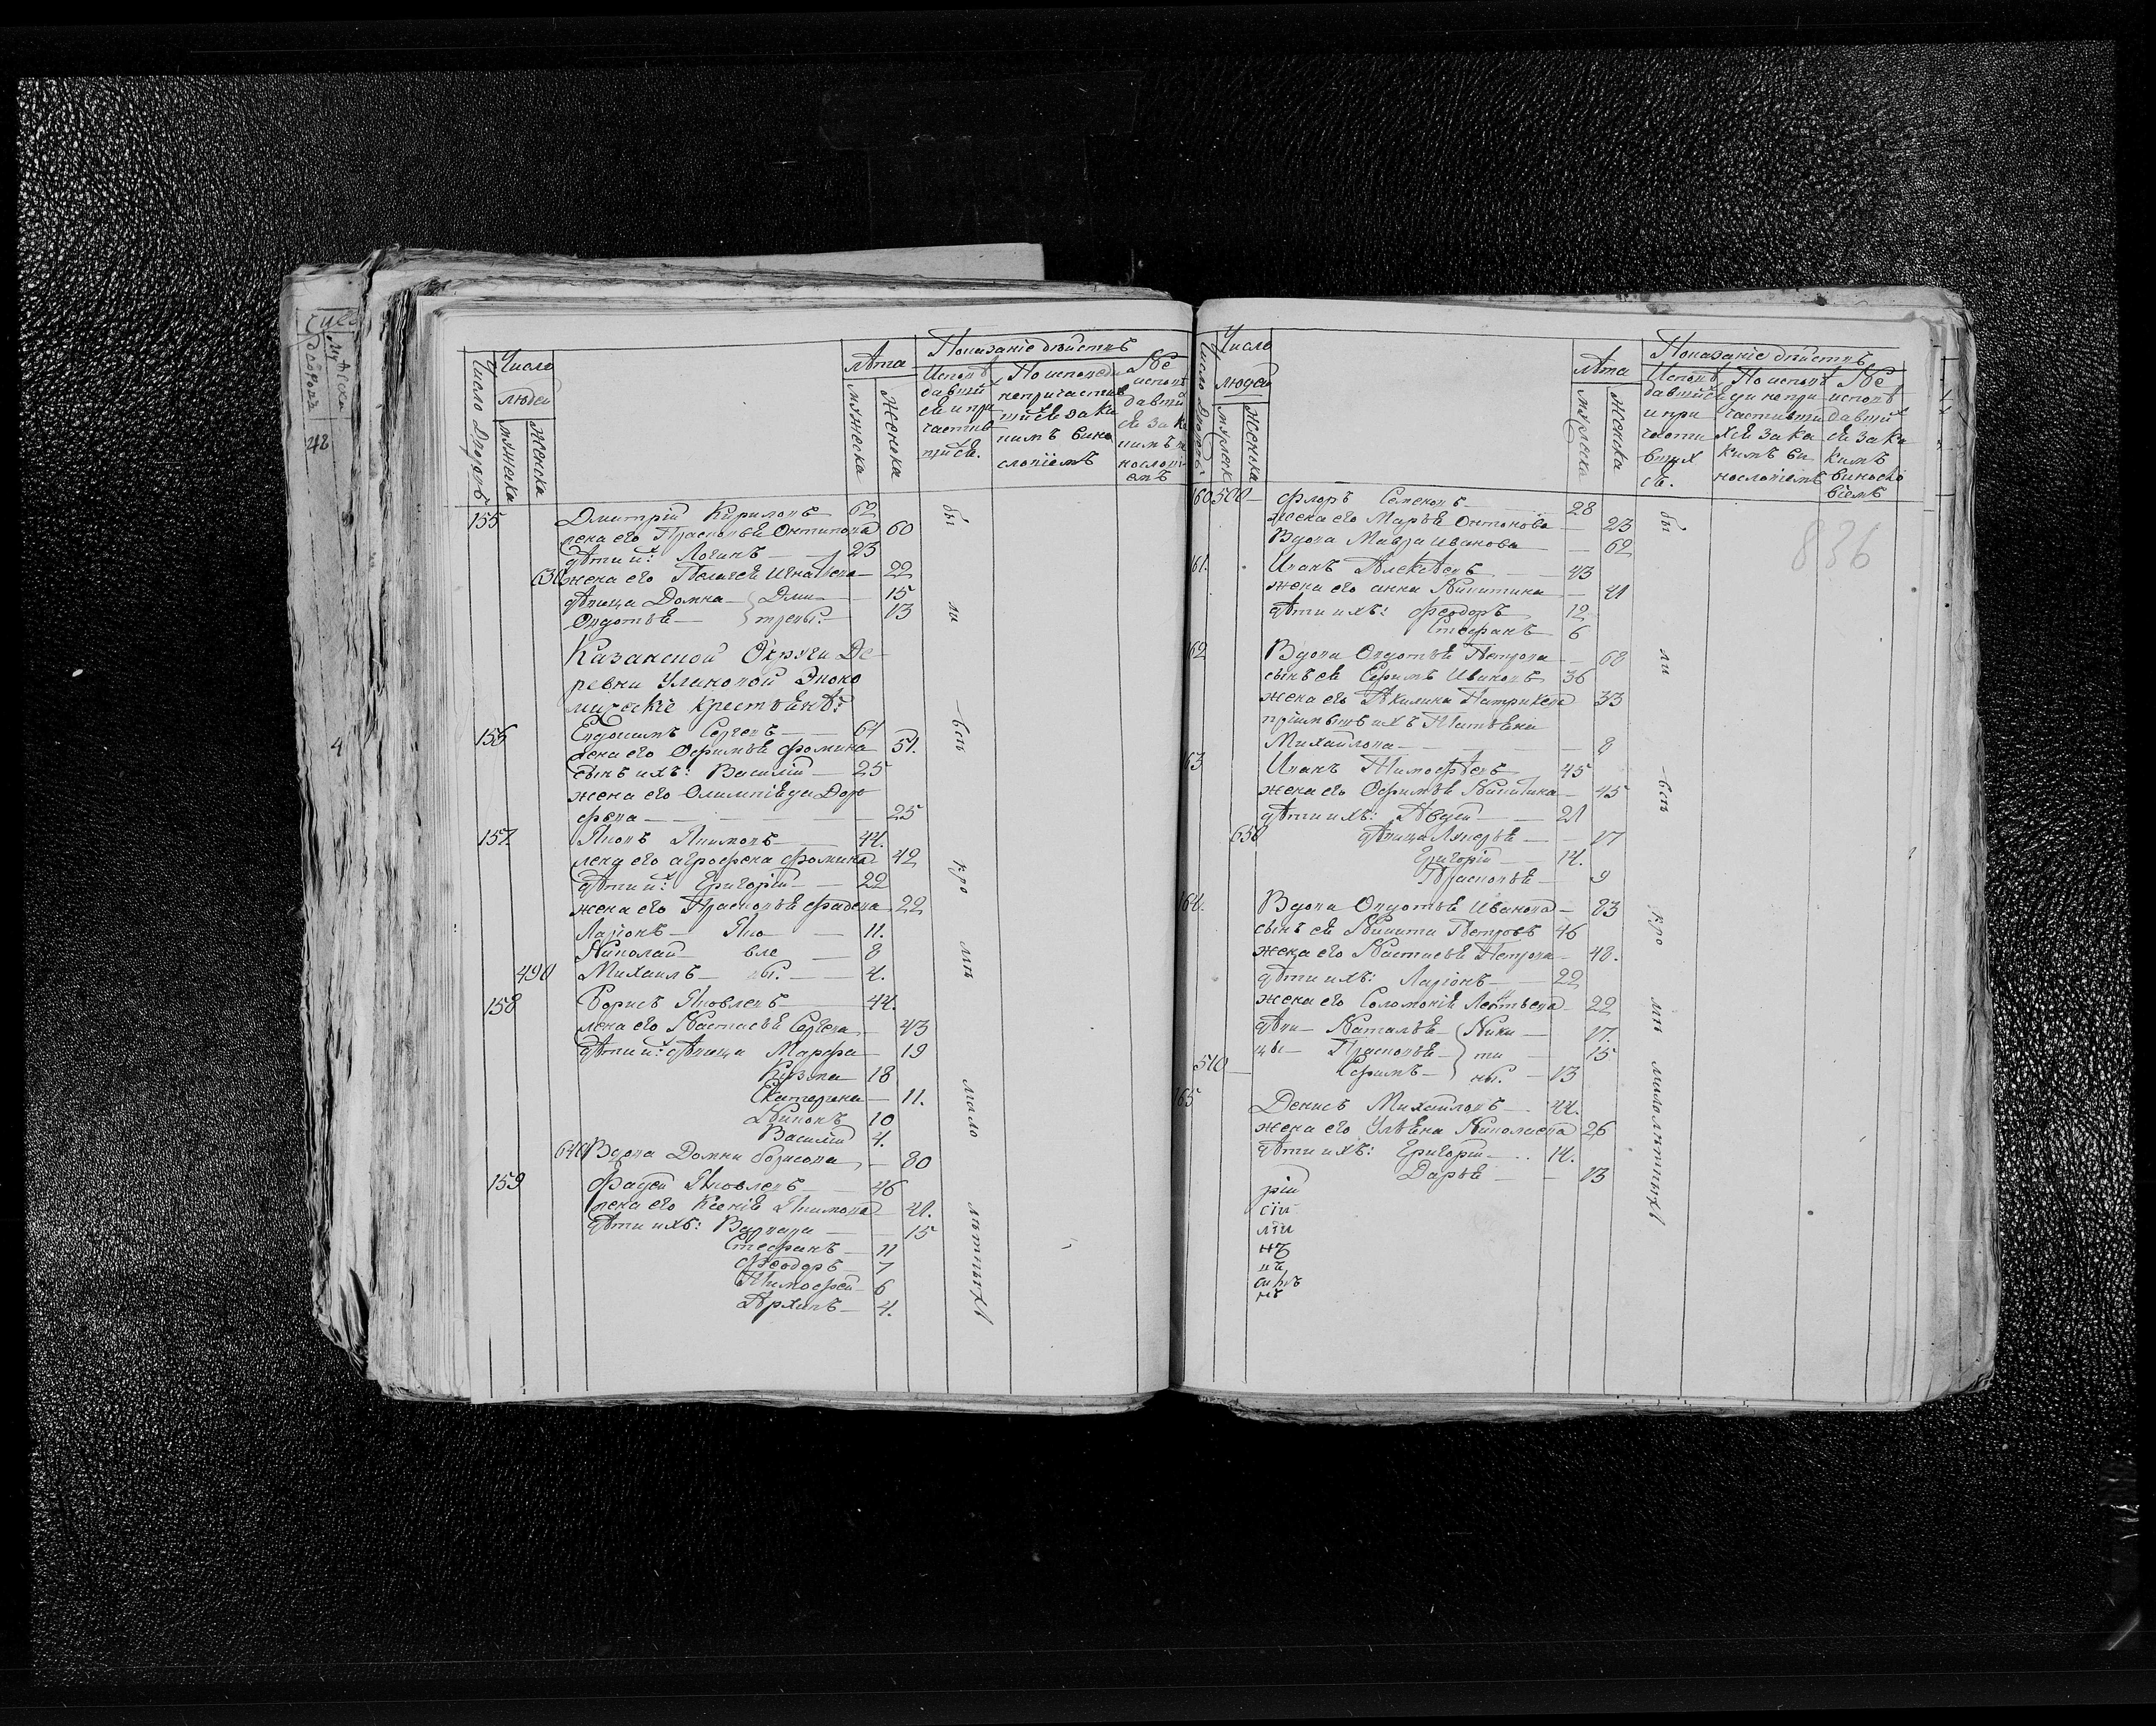 Число дворовъ
Число
людей
мужеска
женска
лѣта
мужеска
женска
Показаніе дѣйствъ
Исповѣ
давшій
ся и при
частив
шійся.
По исповеди
непричастив
шійся за ка
кимъ вино
словіемъ
Не
исповѣ
давшій
ся за ка
кимъ ви
нослові
емъ
155 Дмитрій Кириловъ 62
жена его Прасковья Онтипова 60
дѣти их: Логинъ 23
630 жена его Пелагея Игнатьева 22
дѣвица Домна Дми 15
Овдотья тревы. 13
Казанской Округи Де
ревни Улановой Эконо
мическіе крестьянѣ:
156 Евдокимъ Сергевъ 64
жена его Офимья Фомина 54.
сынъ ихъ: Василій 25
жена его Олимпіяда Доро
фева 25
157 Яковъ Якимовъ 44.
жена его аграфена Фомина 42
дѣти их: Григорій 22
жена его Прасковья Фадева 22
Ларіонъ Яко 11.
Николай вле 8
490 Михаилъ вы. 4.
158 Борисъ Яковлевъ 44.
жена его Настасья Сергева 43
дѣти их: дѣвица Марфа 19
Кузма 18
Екатерина 11.
Никонъ 10
Василій 4.
640 Вдова Домна борисова 80
159 Фадей Яковлевъ 46
жена его Ксенія Якимова 41.
дѣти ихъ: Варвара 15
Стефанъ 11
Феодоръ 7
Тимофей 6
Архипъ 4.
бы
ли
всѣ
кро
мѣ
мало
лѣтныхъ
Число дворовъ
Число
людей
мужеска
женска
лѣта
мужеска
женска
Показаніе дѣйствъ
Исповѣ
давшійся
и при
части
вших
ся.
По исповѣ
ди непри
частивши
хся за ка
кимъ ви
нословіемъ
Не
исповѣ
давшій
ся за ка
кимъ
виносло
віемъ
836
160 500 Флоръ Семеновъ 28
жена его Марья Онтонова 23
Вдова Мавра Иванова 62
161. Иванъ Алексѣевъ 43
жена его анна Никитина 41
дѣти ихъ: Феодоръ 12
Стефанъ 6
162 Вдова Овдотья Петрова 68
сынъ ея Ефимъ Ивановъ 36
жена его Акилина Патрикева 33
пріимышъ ихъ Татьяна
Михайлова 8
163 Иванъ Тимофѣевъ 45
жена его Офимья Никитина 45
дѣти ихъ: Авдей 21
650 дѣвица Лукерья 17
Григорій 14.
Прасковья 9
164. Вдова Овдотья Иванова 83
сынъ ея Никита Петровъ 46
жена его Настасья Петрова 48.
дѣти ихъ: Ларіонъ 22
жена его Соломонія Леонтьева 22
дѣви Наталья Ники 17.
цы Прасковья ти 15
510 Ефимъ ны. 13
165 Денисъ Михайловъ 44.
жена его Ульяна Николаева 26
дѣти ихъ: Григорій 14.
Дарья 13
рій
сій
лій
нъ
бы
ли
всѣ
кро
мѣ
малолѣтныхъ